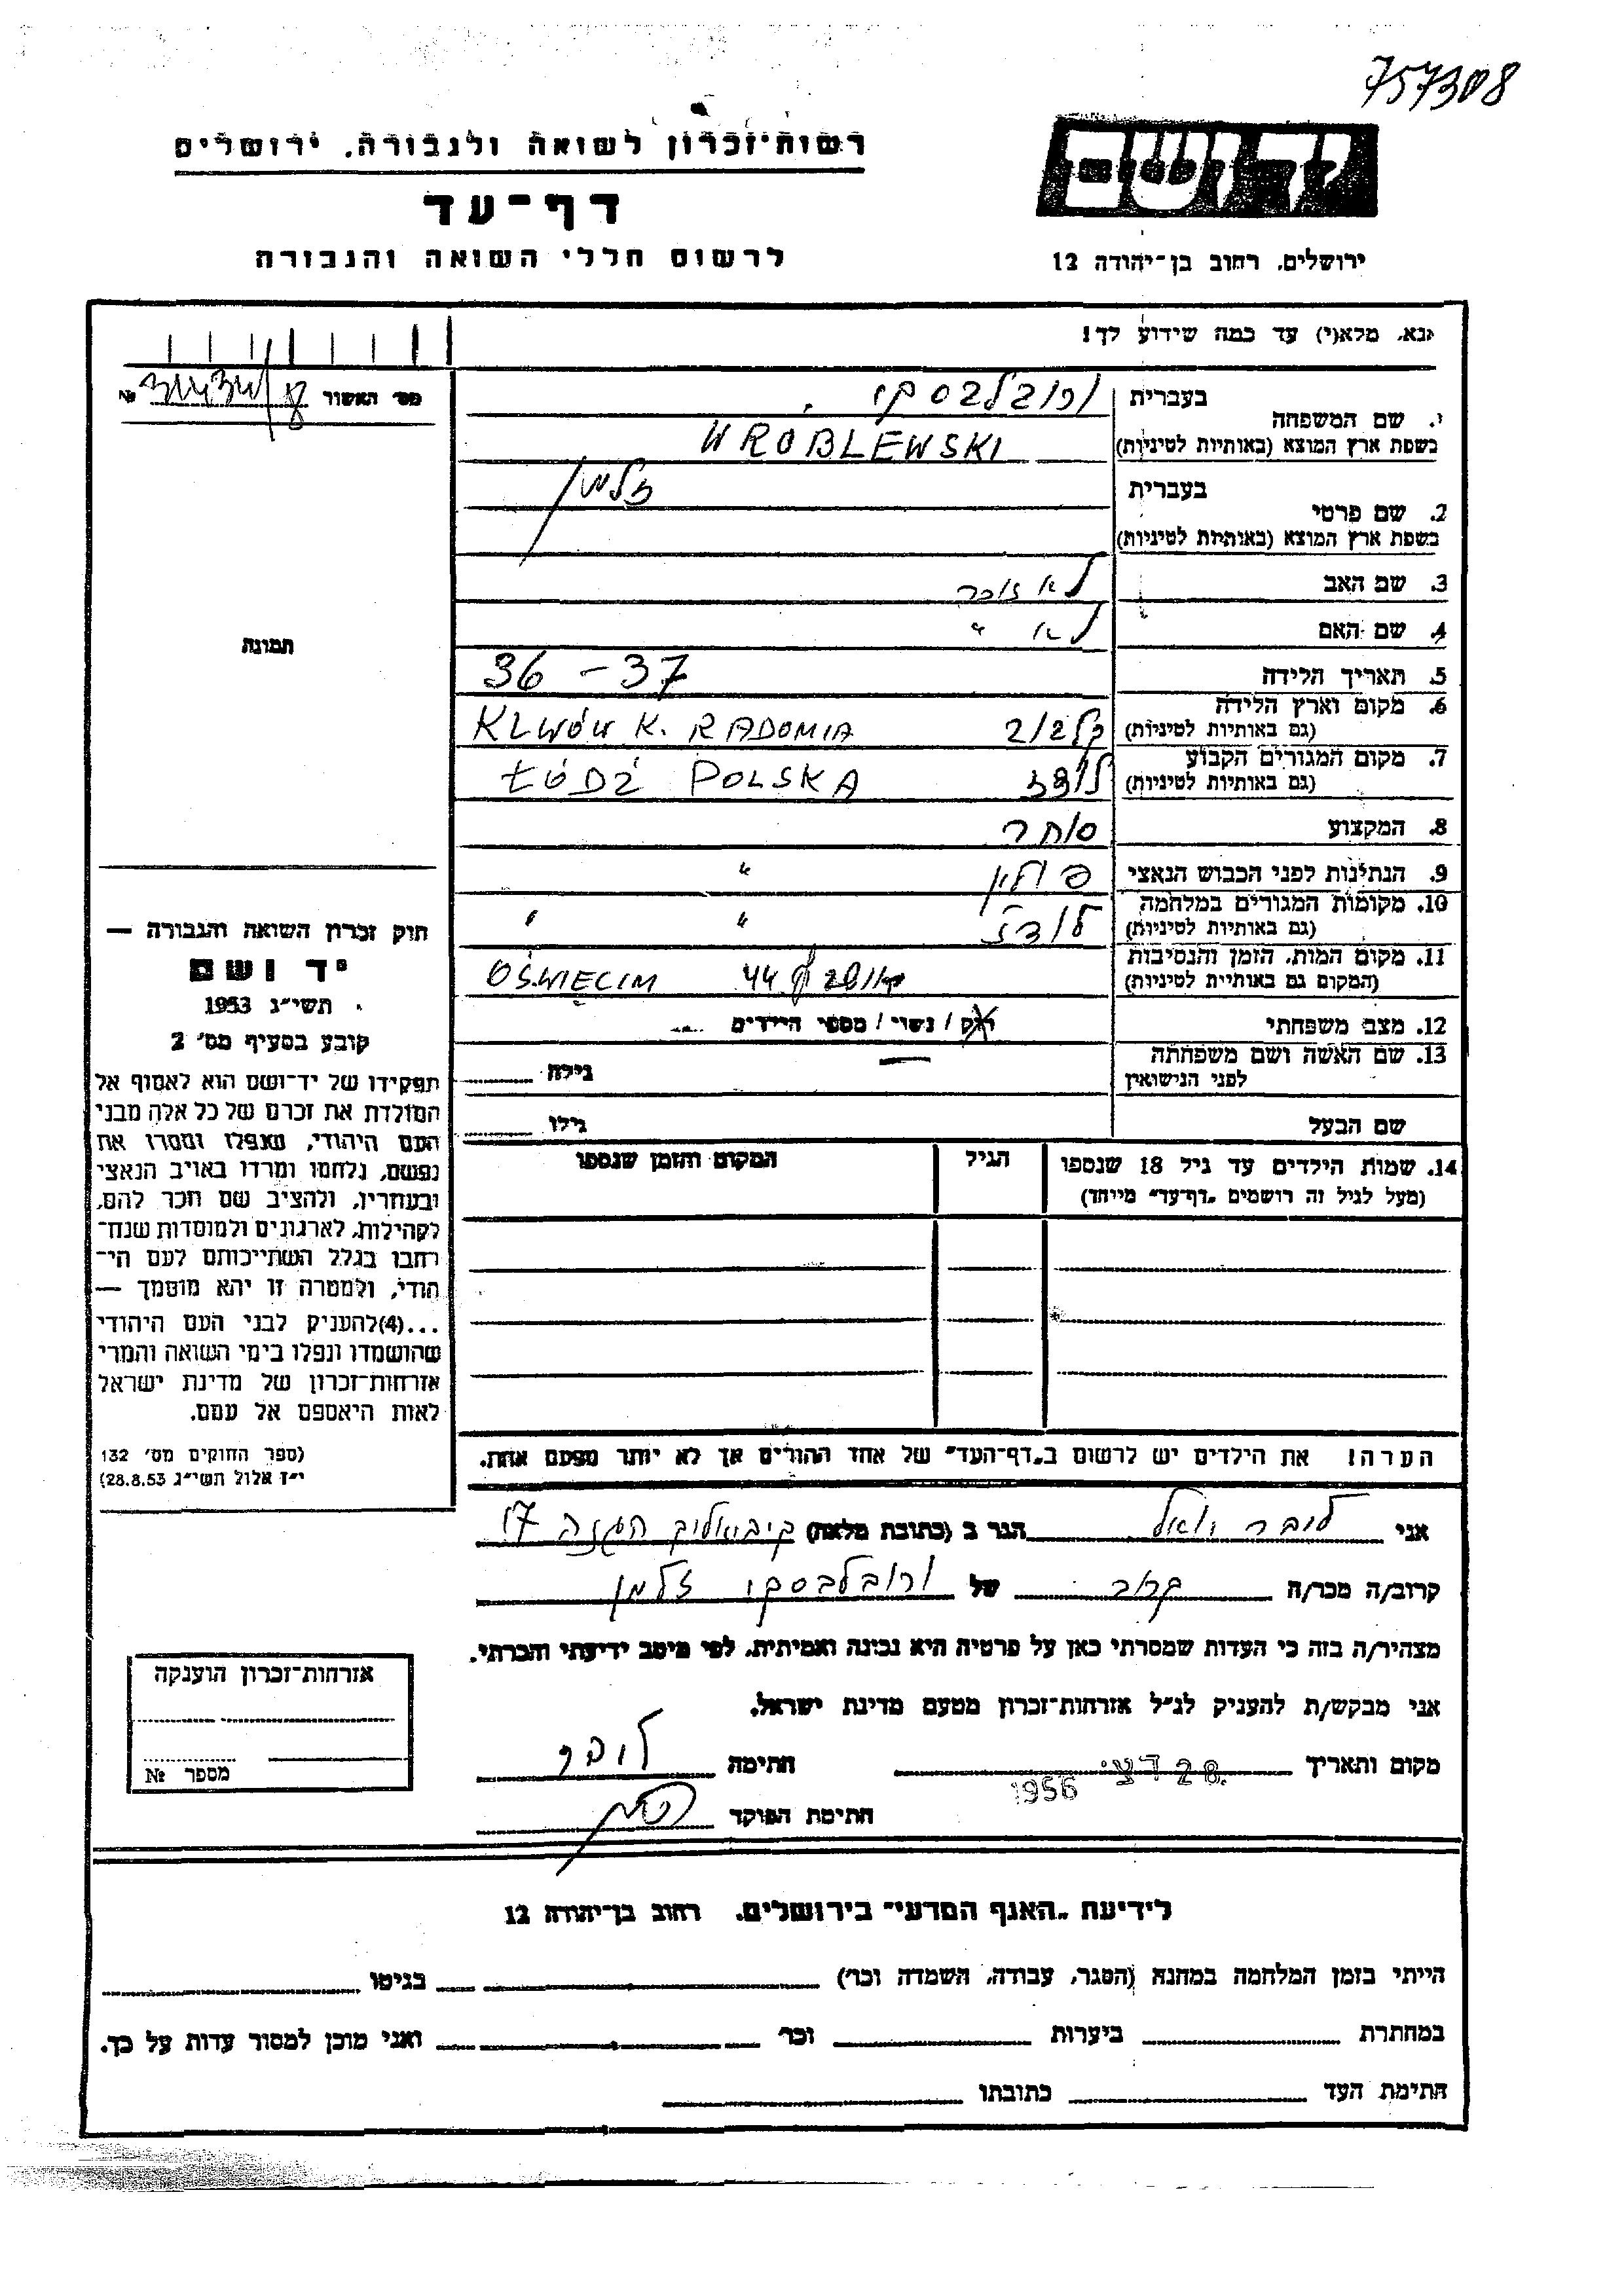 757308
רשות־זכרון לשואה ולגבורה, ירושלים
דף־עד
לרשום חללי השואה והגבורה
יד ושם
ירושלים, רחוב בן־יהודה 12
נא, מלא(י) עד כמה שידוע לך!
מס׳ האשור №
1. שם המשפחה
בעברית
ורובלבסקי
בשפת ארץ המוצא (באותיות לטיניות)
WRÓBLEWSKI
2. שם פרטי
בעברית
זלמן
בשפת ארץ המוצא (באותיות לטיניות)
3. שם האב
לא זוכר
4. שם האם
לא "
5. תאריך הלידה
36 – 37
6. מקום וארץ הלידה
(גם באותיות לטיניות)
קלבוב KLWÓW K. RADOMIA
7. מקום המגורים הקבוע
(גם באותיות לטיניות)
לודז ŁÓDŹ POLSKA
8. המקצוע
סוחר
9. הנתינות לפני הכבוש הנאצי
פולין "
10. מקומות המגורים במלחמה
(גם באותיות לטיניות)
לודז " "
11. מקום המות, הזמן והנסיבות
(המקום גם באותיות לטיניות)
אושביץ 44 OŚWIĘCIM
12. מצב משפחתי
רוק / נשוי / מספר הילדים
13. שם האשה ושם משפחתה
לפני הנישואין
גילה
שם הבעל
גילו
14. שמות הילדים עד גיל 18 שנספו
(מעל לגיל זה רושמים „דף־עד" מיוחד)
הגיל
המקום והזמן שנספו
תמונה
חוק זכרון השואה והגבורה —
יד ושם
תשי״ג 1953
קובע בסעיף מס׳ 2
תפקידו של יד־ושם הוא לאסוף אל
המולדת את זכרם של כל אלה מבני
העם היהודי, שנפלו ומסרו את
נפשם, נלחמו ומרדו באויב הנאצי
ובעוזריו, ולהציב שם וזכר להם,
לקהילות, לארגונים ולמוסדות שנח־
רבו בגלל השתייכותם לעם הי־
הודי, ולמטרה זו יהא מוסמך —
...(4)להעניק לבני העם היהודי
שהושמדו ונפלו בימי השואה והמרי
אזרחות־זכרון של מדינת ישראל
לאות היאספם אל עמם.
(ספר החוקים מס׳ 132
י״ז אלול תשי״ג 28.8.53)
הערה! את הילדים יש לרשום ב„דף־העד" של אחד ההורים אך לא יותר מפעם אחת.
אני לובר יואל הגר ב (כתובת מלאה) הגנה 17
קרוב/ה מכר/ה קרוב של ורובלבסקי זלמן
מצהיר/ה בזה כי העדות שמסרתי כאן על פרטיה היא נכונה ואמיתית, לפי מיטב ידיעתי והכרתי.
אני מבקש/ת להעניק לנ״ל אזרחות־זכרון מטעם מדינת ישראל.
מקום ותאריך 28 דצמ׳ 1956 חתימה לובר
חתימת הפוקד
אזרחות־זכרון הוענקה
מספר №
לידיעת „האגף המדעי" בירושלים, רחוב בן־יהודה 12
הייתי בזמן המלחמה במחנה (הסגר, עבודה, השמדה וכו׳) בגיטו
במחתרת ביערות וכו׳ ואני מוכן למסור עדות על כך.
חתימת העד כתובתו